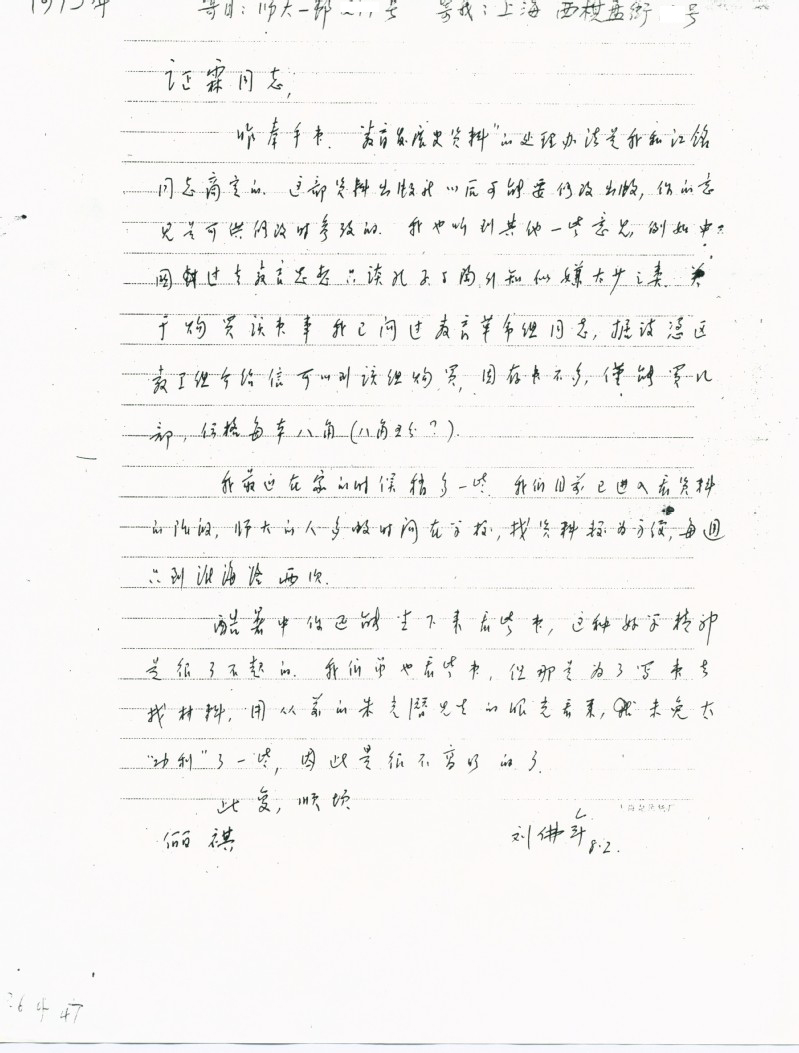 1975年 寄自：师大一邨 号 寄我：上海 西棋盘街 号
证霖同志，
昨奉手书．"教育发展史资料"的处理办法是我和江铭
同志商定的．这部资料出版社以后可能要修改出版，你的意
见是可供修改时参考的．我也听到其他一些意见，例如中
国过去教育思想只谈孔子与陶行知似嫌太少之类．关
于购买该书事我已问过教育革命组同志，据谈凭区
教卫组介绍信可以到该组购买，因存书不多，仅能买几
部，价格每本八角（八角五分？）．
我最近在家的时候稍多一些．我们目前已进入看资料
的阶段，师大的人多数时间在学校，找资料较为方便，每週
只到淮海路两次．
酷暑中你还能坐下来看些书，这种好学精神
是很了不起的．我们虽也看些书，但那是为了写书去
找材料，用从前的朱先生的眼光看来，就未免太
"功利"了一些，因此是很不高明的了．
此复，顺颂
俪祺
刘佛年 8.2.
26 4 47